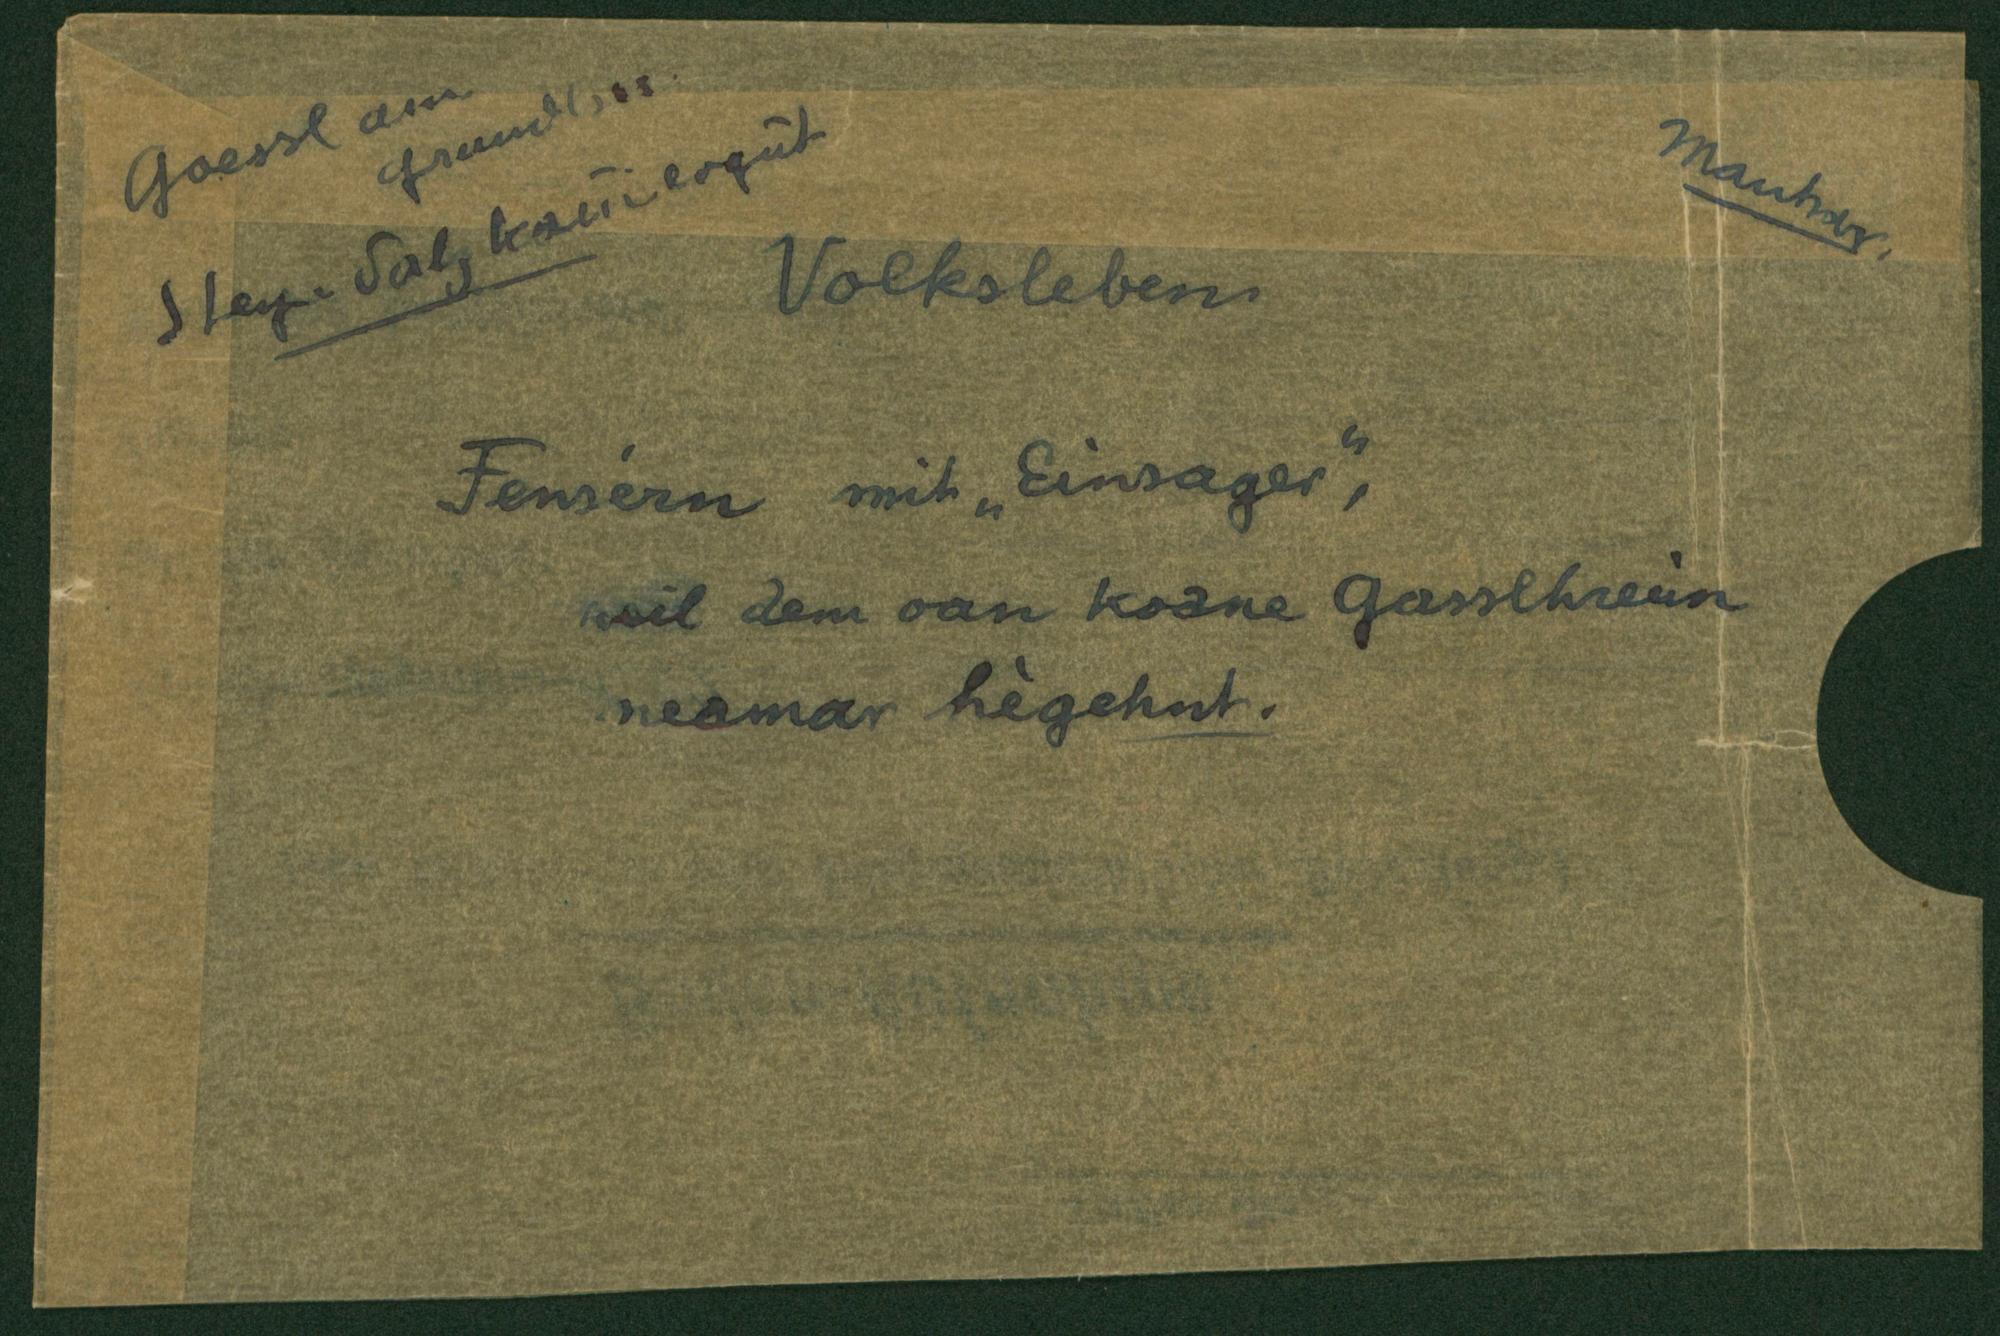 Goessl am
Grundlsee.
Steyr. Salzkammergut
Mautner.
Volksleben
Fensérn mit „Einsager“,
weil dem oan koane Gasslhreim
neamar hègehnt.